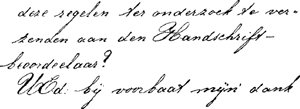 deze regelen ter onderzoek te ver-
zenden aan den Handschrift-
beoordeelaar?
UEd: bij voorbaat mijn dank